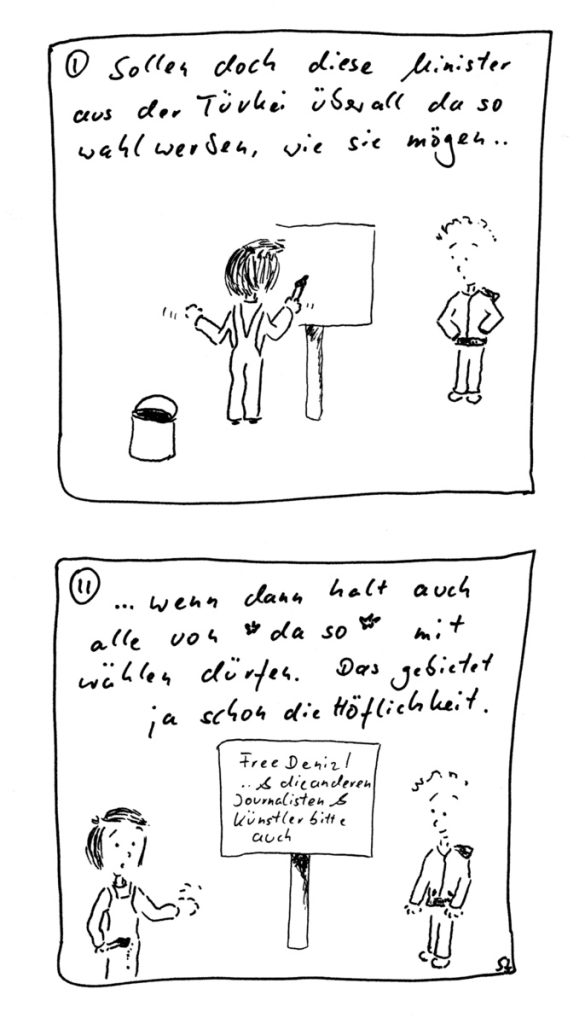 I Sollen doch diese Minister
aus der Türkei überall da so
wahlwerben, wie sie mögen..
II ... wenn dann halt auch
alle von *da so* mit
wählen dürfen. Das gebietet
ja schon die Höflichkeit.
Free Deniz!
..& die anderen
Journalisten &
Künstler bitte
auch